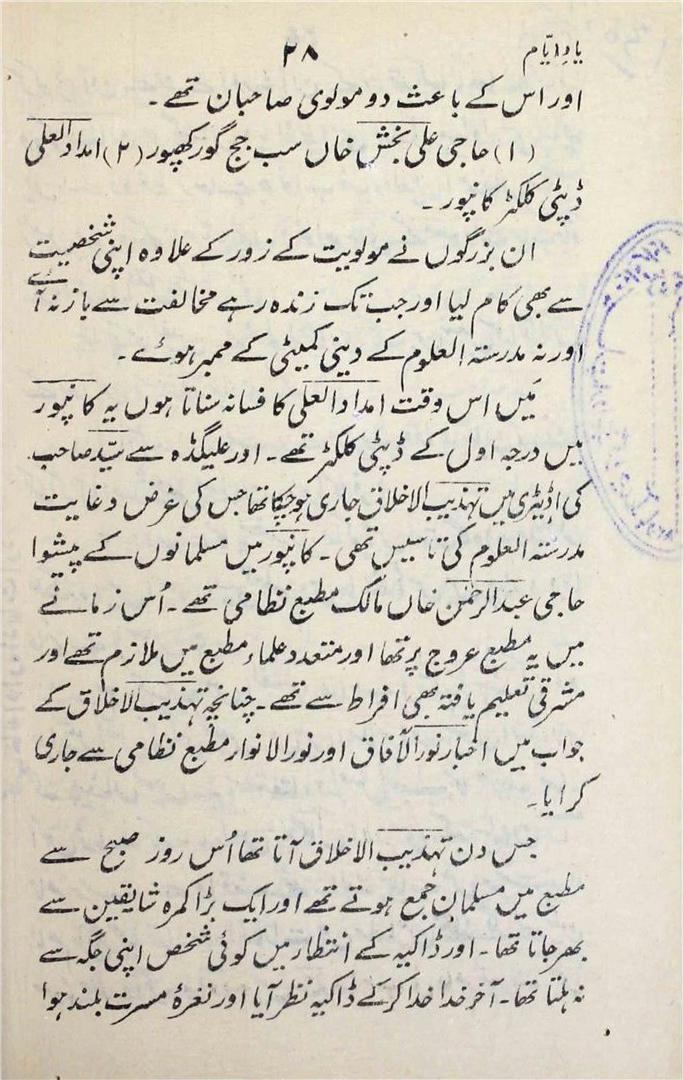 یادِ ایّام
۲۸
اور اس کے باعث دو مولوی صاحبان تھے ۔
(۱) حاجی علی بخش خاں سب جج گورکھپور (۲) امداد العلی
ڈپٹی کلکٹر کانپور ۔
ان بزرگوں نے مولویت کے زور کے علاوہ اپنی شخصیت
سے بھی کام لیا اور جب تک زندہ رہے مخالفت سے باز نہ آئے
اور نہ مدرستہ العلوم کے دینی کمیٹی کے ممبر ہوئے ۔
مَیں اس وقت امداد العلی کا فسانہ سناتا ہوں یہ کانپور
میں درجہ اول کے ڈپٹی کلکٹر تھے ۔ اور علیگڈہ سے سیّد صاحب
کی اڈیٹری میں تہذیب الاخلاق جاری ہو چکا تھا جس کی غرض و غایت
مدرستہ العلوم کی تاسیس تھی ۔ کانپور میں مسلمانوں کے پیشوا
حاجی عبدالرحمٰن خاں مالک مطبع نظامی تھے ۔ اُس زمانے
میں یہ مطبع عروج پر تھا اور متعدد علماء مطبع میں ملازم تھے اور
مشرقی تعلیم یافتہ بھی افراط سے تھے ۔ چنانچہ تہذیب الاخلاق کے
جواب میں اخبار نور الآفاق اور نور الانوار مطبع نظامی سے جاری
کرایا ۔
جس دن تہذیب الاخلاق آتا تھا اُس روز صبح سے
مطبع میں مسلمان جمع ہوتے تھے اور ایک بڑا کمرہ شایقین سے
بھر جاتا تھا ۔ اور ڈاکیہ کے انتظار میں کوئی شخص اپنی جگہ سے
نہ ہلتا تھا ۔ آخر خدا خدا کر کے ڈاکیہ نظر آیا اور نغرۂ مسرت بلند ہوا